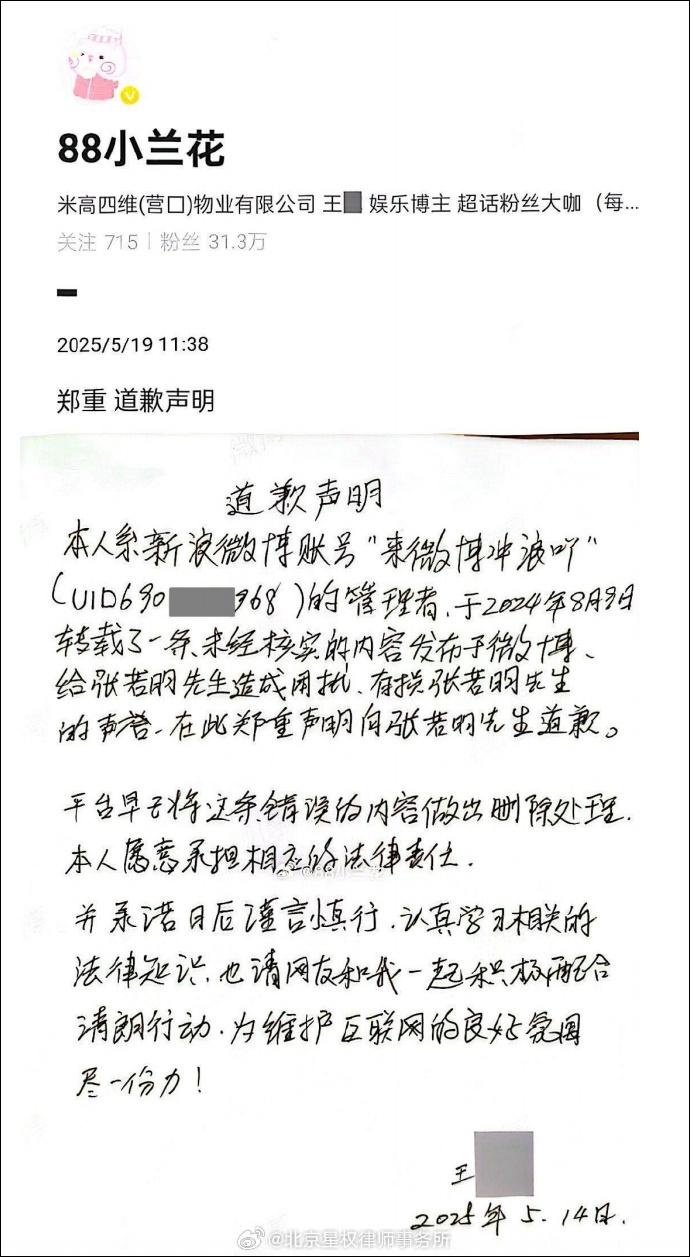 88小兰花
米高四维(营口)物业有限公司 王 娱乐博主 超话粉丝大咖（每...
关注 715 | 粉丝 31.3万
2025/5/19 11:38
郑重 道歉声明
道歉声明
本人系新浪微博账号“来微博冲浪吖”
(UID690 968)的管理者,于2024年8月9日
转载了一条未经核实的内容发布于微博、
给张若昀先生造成困扰、有损张若昀先生
的声誉、在此郑重声明向张若昀先生道歉。
平台早已将这条错误的内容做出删除处理.
本人愿意承担相应的法律责任.
@88小兰花
并承诺日后谨言慎行.认真学习相关的
法律知识.也请网友和我一起积极配合
清朗行动.为维护互联网的良好氛围
尽一份力!
王
2025年5.14日.
@北京星权律师事务所